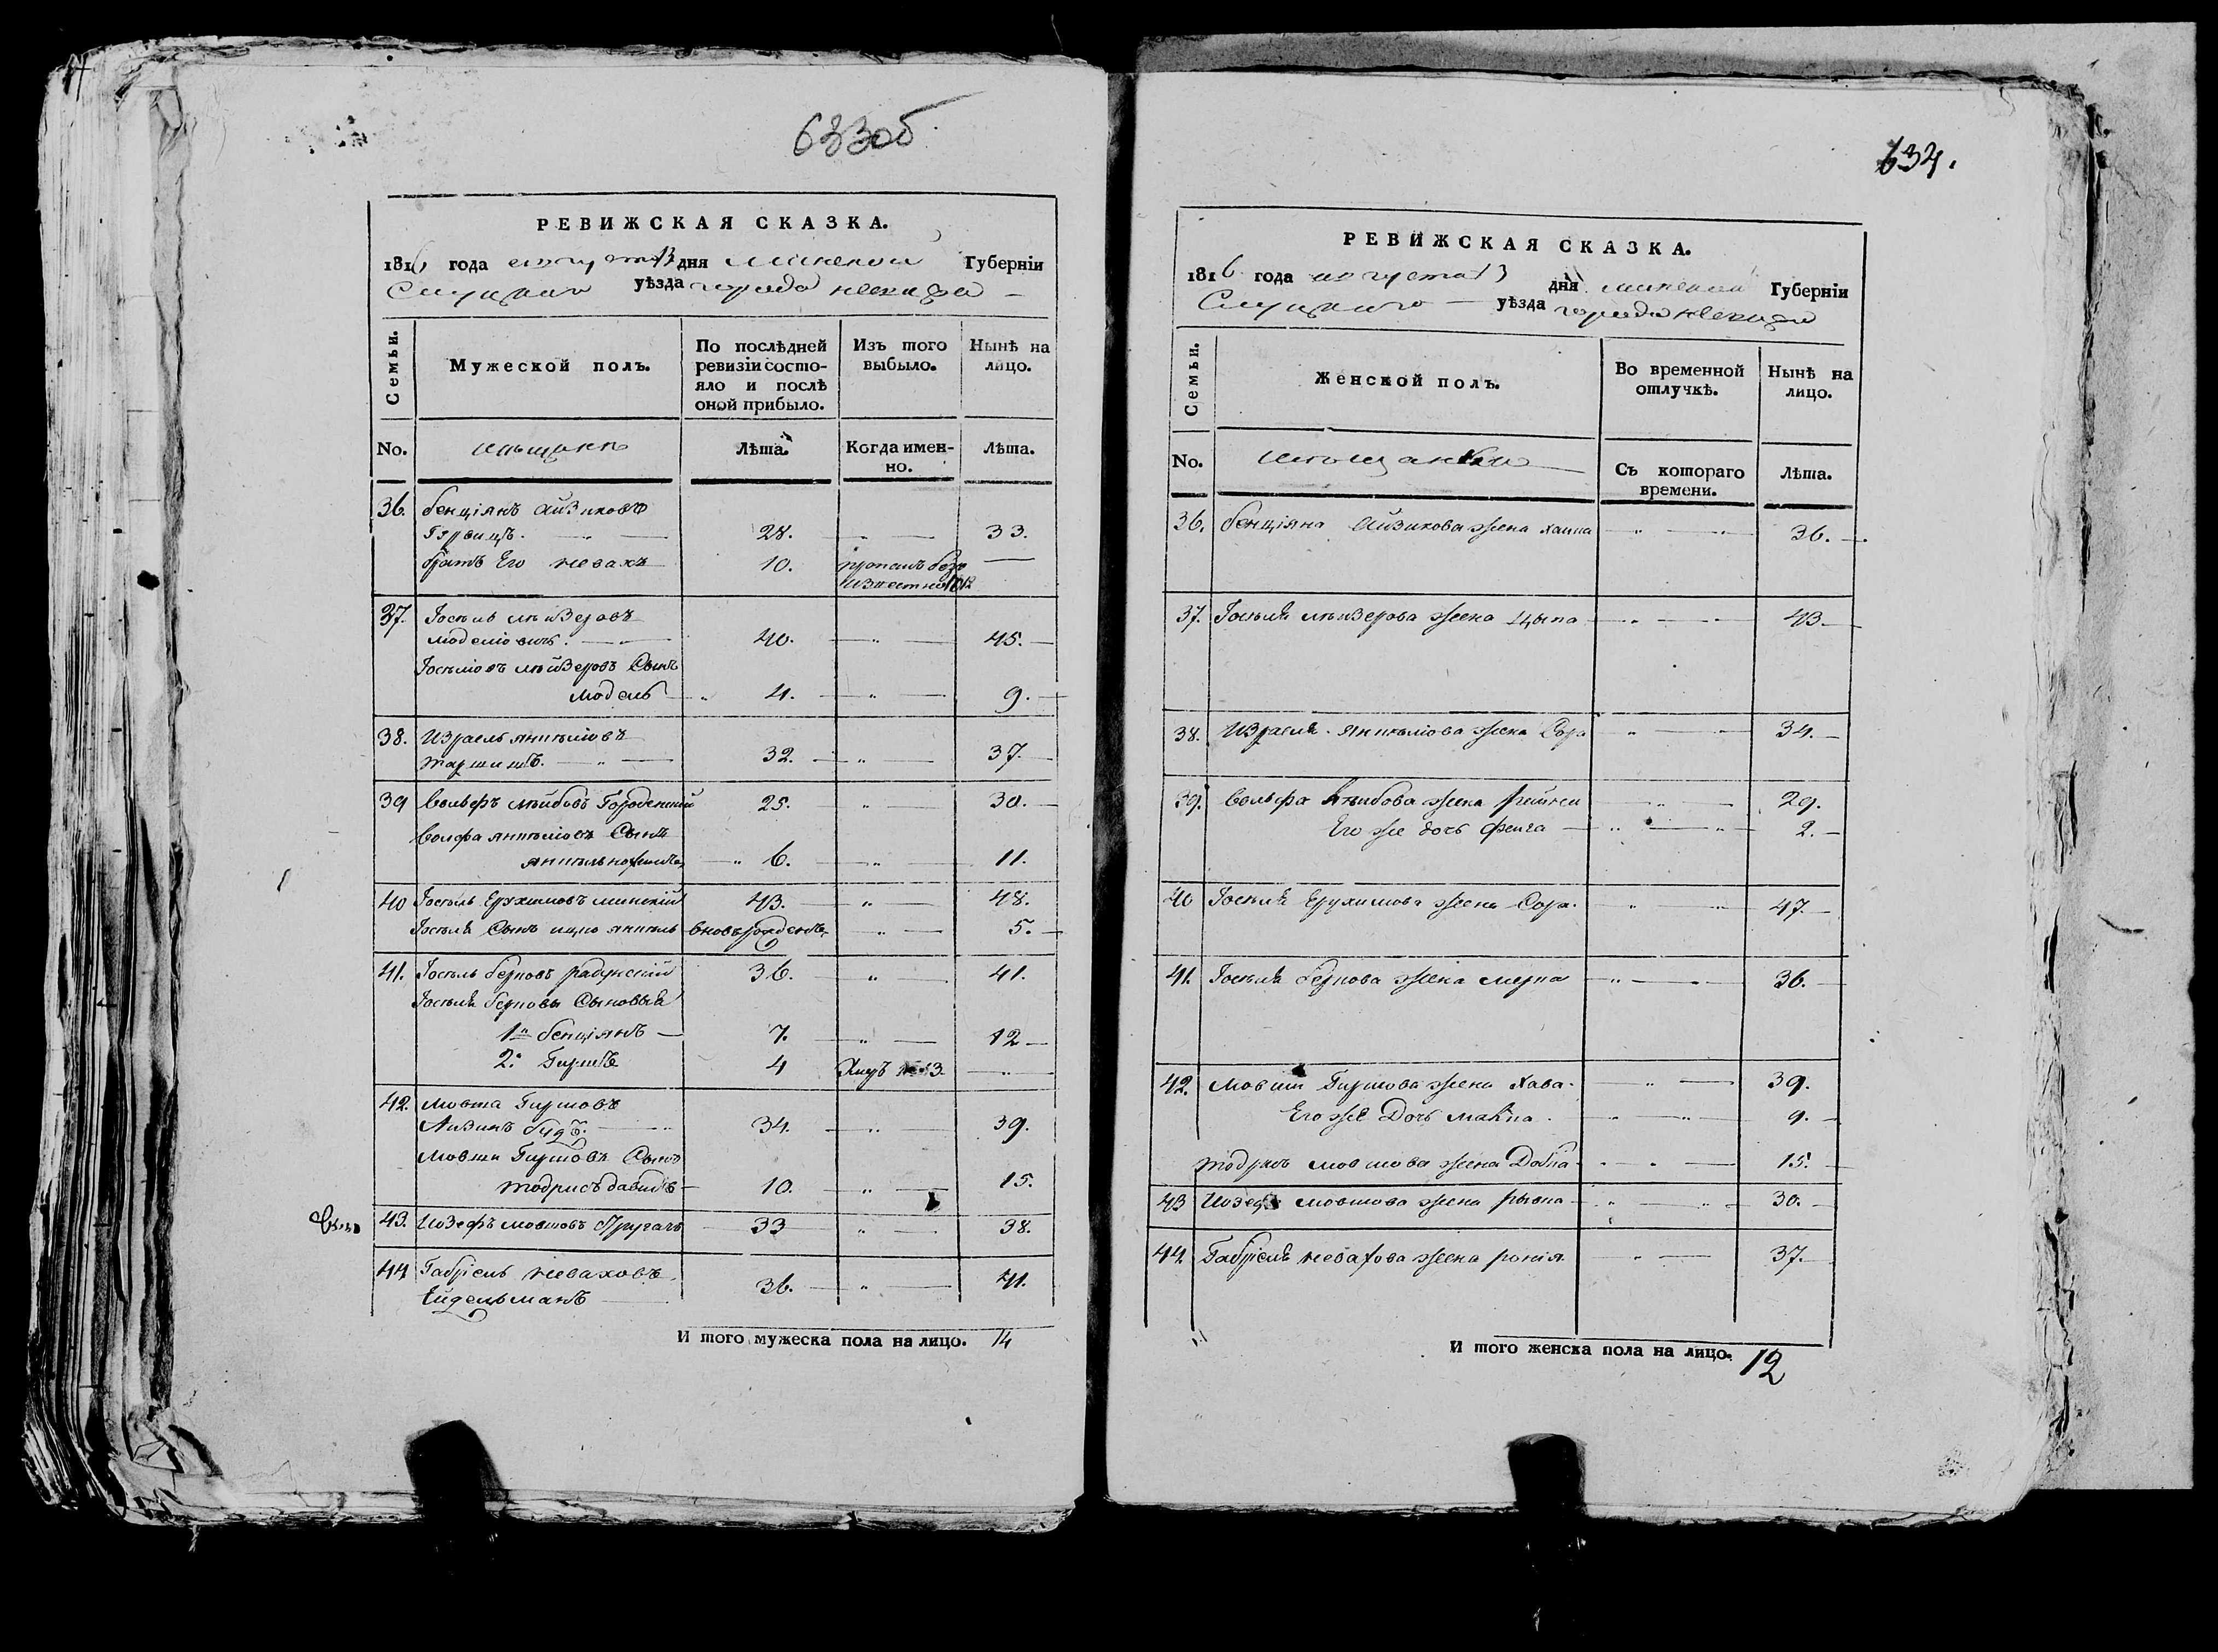 633об.
РЕВИЖСКАЯ СКАЗКА.
1816 года августа 13 дня минской Губерніи
Слуцкаго уѣзда города несвижа
Семьи.
Мужеской полъ.
По послѣдней ревизіи состо-
яло и послѣ
оной прибыло.
Изъ того выбыло.
Нынѣ на лицо.
No. мѣщане
Лѣта.
Когда имен-
но.
Лѣта.
36. бенціянъ айзиковъ
Гурвицъ. 28. 33.
братъ Его невахъ 10. пропалъ безъ
извѣстно 1812
37. Іосель лейзеровъ
моделіовичъ. 40. 45.
Іоселіовъ лейзеровъ Сынъ
модель 4. 9.
38. Израель янкеліовъ
таршишъ. 32. 37.
39 Вольфъ лейбовъ Городенский 25. 30.
Волфа янкеліовъ Сынъ
янкель 6. 11.
40 Іосель Ерухимовъ минскій 43. 48.
Іоселя Сынъ ицко янкель вновьрожденъ 5.
41. Іосель берковъ радунскій 36. 41.
Іоселя беркова Сыновья
1й бенціянъ 7. 12
2. Гиршъ 4 Умеръ 13.
42. мовша Гиршовъ
34. 39.
Мовши Гиршовъ Сынъ
тодрисъ давидъ 10. 15.
43. Іозефъ мовшовъ 33 38.
44 Габріель неваховъ
Ейдельманъ 36. 41.
И того мужеска пола на лицо. 14
634.
РЕВИЖСКАЯ СКАЗКА.
1816 года августа 13 дня минской Губерніи
Слуцкаго уѣзда города несвижа
Семьи.
Женской полъ.
Во временной
отлучкѣ.
Нынѣ на
лицо.
No. мѣщанки
Съ котораго
времени.
Лѣта.
36. бенціяна айзикова жена ханна 36.
37. Іоселя лейзерова жена Цыпа 43.
38. Израеля янкеліова жена Сора 34.
39. Вольфа лейбова жена рейзея 29.
Его же дочь фейга 2.
40 Іоселя Ерухимова жена Сора. 47.
41. Іоселя беркова жена мерка 36.
42. мовши Гиршова жена Хава. 39.
Его же Дочь Малка. 9.
тодриса мовшова жена Добка 15.
43 Іозефа мовшова жена рывка 30.
44. Габріеля невахова жена ронія 37.
И того женска пола на лицо. 12